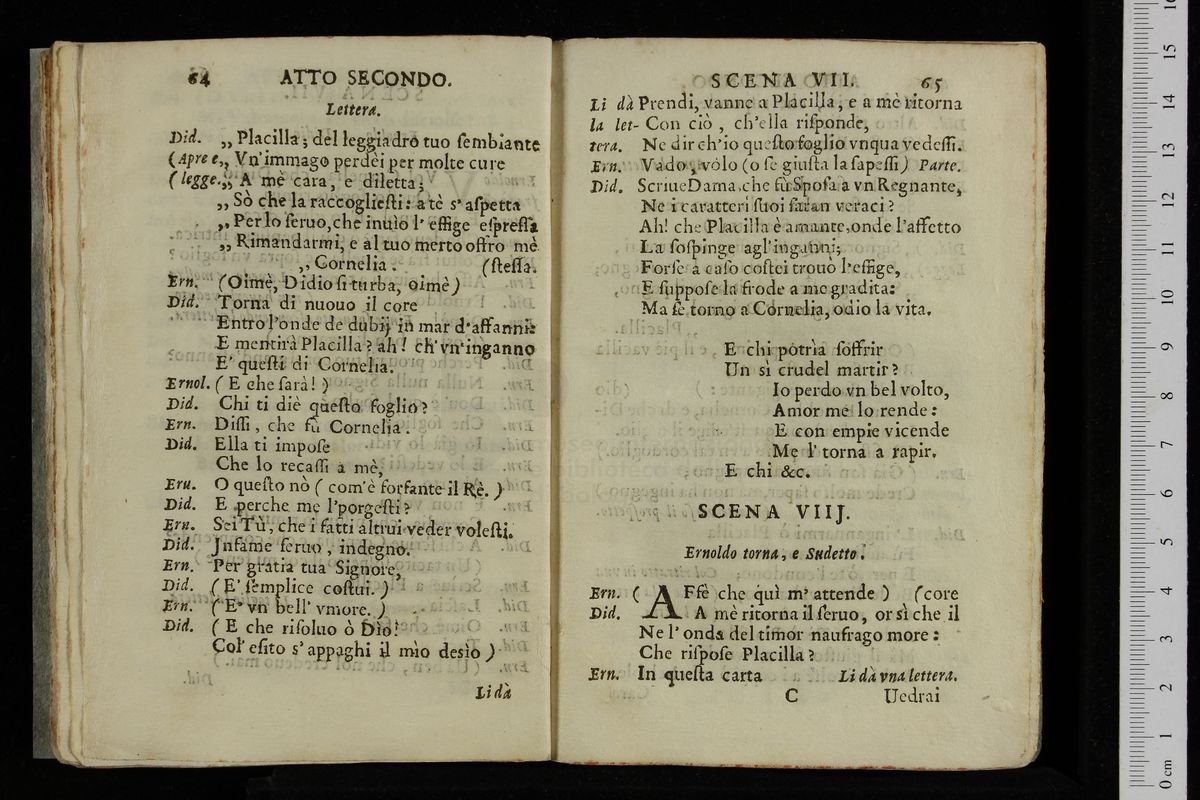 64 ATTO SECONDO.
Lettera.
Did. ,, Placilla; del leggiadro tuo ſembiante
(Apre e,, Vn'immago perdèi per molte cure
(legge.,, A mè cara, e diletta;
,, Sò che la raccoglieſti: a tè s'aſpetta
,, Per lo ſeruo, che inuìo l'effige eſpreſſa
,, Rimandarmi, e al tuo merto offro mè
,, Cornelia. (ſteſſa.
Ern. (Oimè, Didio ſi turba, oimè)
Did. Torna di nuouo il core
Entro l'onde de dubij in mar d'affanni:
E mentirà Placilla? ah! ch'vn'inganno
E' queſti di Cornelia.
Ernol. (E che ſarà!)
Did. Chi ti diè queſto foglio?
Ern. Diſſi, che fù Cornelia.
Did. Ella ti impoſe
Che lo recaſſi a mè,
Eru. O queſto nò (com'è forfante il Rè.)
Did. E perche me l'porgeſti?
Ern. Sei Tù, che i fatti altrui veder voleſti.
Did. Jnfame ſeruo, indegno.
Ern. Per gratia tua Signore,
Did. (E' ſemplice coſtui.)
Ern. (E' vn bell' vmore.)
Did. (E che riſoluo ò Dio!
Col' eſito s'appaghi il mio deſio)
Li dà
SCENA VII. 65
Li dà Prendi, vanne a Placilla, e a mè ritorna
la let- Con ciò, ch'ella riſponde,
tera. Ne dir ch'io queſto foglio vnqua vedeſſi.
Ern. Vado, volo (o ſe giuſta la ſapeſſi) Parte.
Did. Scriue Dama, che fù Spoſa a vn Regnante,
Ne i caratteri ſuoi ſaran veraci?
Ah! che Placilla è amante, onde l'affetto
La ſoſpinge agl'inganni;
Forſe a caſo coſtei trouò l'effige,
E ſuppoſe la frode a me gradita:
Ma ſe torno a Cornelia, odio la vita.
E chi potria ſoffrir
Un sì crudel martir?
Io perdo vn bel volto,
Amor me lo rende:
E con empie vicende
Me l' torna a rapir.
E chi &c.
SCENA VIIJ.
Ernoldo torna, e Sudetto.
Ern. ( AFfè che quì m' attende) (core
Did. A mè ritorna il ſeruo, or sì che il
Ne l' onda del timor naufrago more:
Che riſpoſe Placilla?
Ern. In queſta carta Li dà vna lettera.
C Uedrai